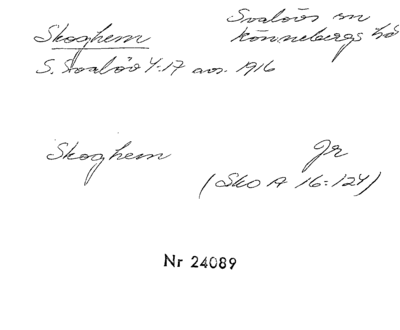 Skoghem
Svalövs sn
Rönnebergs hd
S. Svalöv 4:17 avs. 1916
Skoghem
Jr
(Sko A 16:124)
Nr 24089